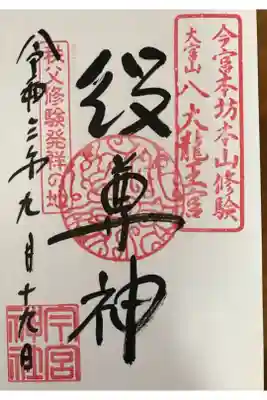 今宮本坊本山修験
大宮山 八大龍王宮
役尊神
秩父修験発祥の地
令和三年九月十九日
今宮神社